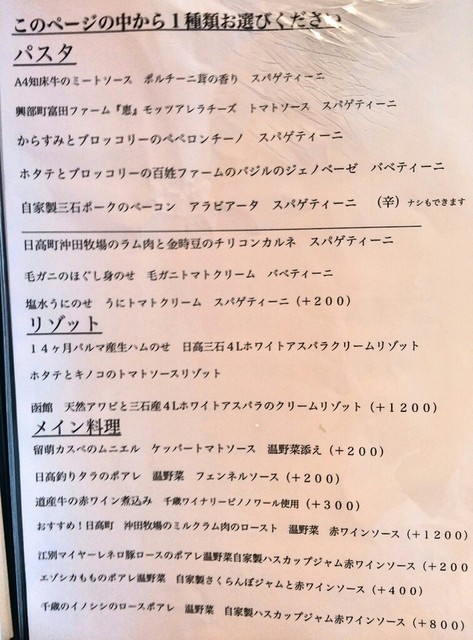 このページの中から１種類お選びください
パスタ
A4知床牛のミートソース　ポルチーニ茸の香り　スパゲティーニ
興部町冨田ファーム『恵』モッツアレラチーズ　トマトソース　スパゲティーニ
からすみとブロッコリーのペペロンチーノ　スパゲティーニ
ホタテとブロッコリーの百姓ファームのバジルのジェノベーゼ　バベティーニ
自家製三石ポークのベーコン　アラビアータ　スパゲティーニ　（辛）ナシもできます
日高町沖田牧場のラム肉と金時豆のチリコンカルネ　スパゲティーニ
毛ガニのほぐし身のせ　毛ガニトマトクリーム　バベティーニ
塩水うにのせ　うにトマトクリーム　スパゲティーニ（＋２００）
リゾット
１４ヶ月パルマ産生ハムのせ　日高三石４Lホワイトアスパラクリームリゾット
ホタテとキノコのトマトソースリゾット
函館　天然アワビと三石産４Lホワイトアスパラのクリームリゾット（＋１２００）
メイン料理
留萌カスベのムニエル　ケッパートマトソース　温野菜添え（＋２００）
日高釣りタラのポアレ　温野菜　フェンネルソース（＋２００）
道産牛の赤ワイン煮込み　千歳ワイナリーピノノワール使用（＋３００）
おすすめ！日高町　沖田牧場のミルクラム肉のロースト　温野菜　赤ワインソース（＋１２００）
江別マイヤーレネロ豚ロースのポアレ温野菜自家製ハスカップジャム赤ワインソース（＋２００
エゾシカもものポアレ温野菜　自家製さくらんぼジャムと赤ワインソース（＋４００）
千歳のイノシシのロースポアレ　温野菜　自家製ハスカップジャム赤ワインソース（＋８００）